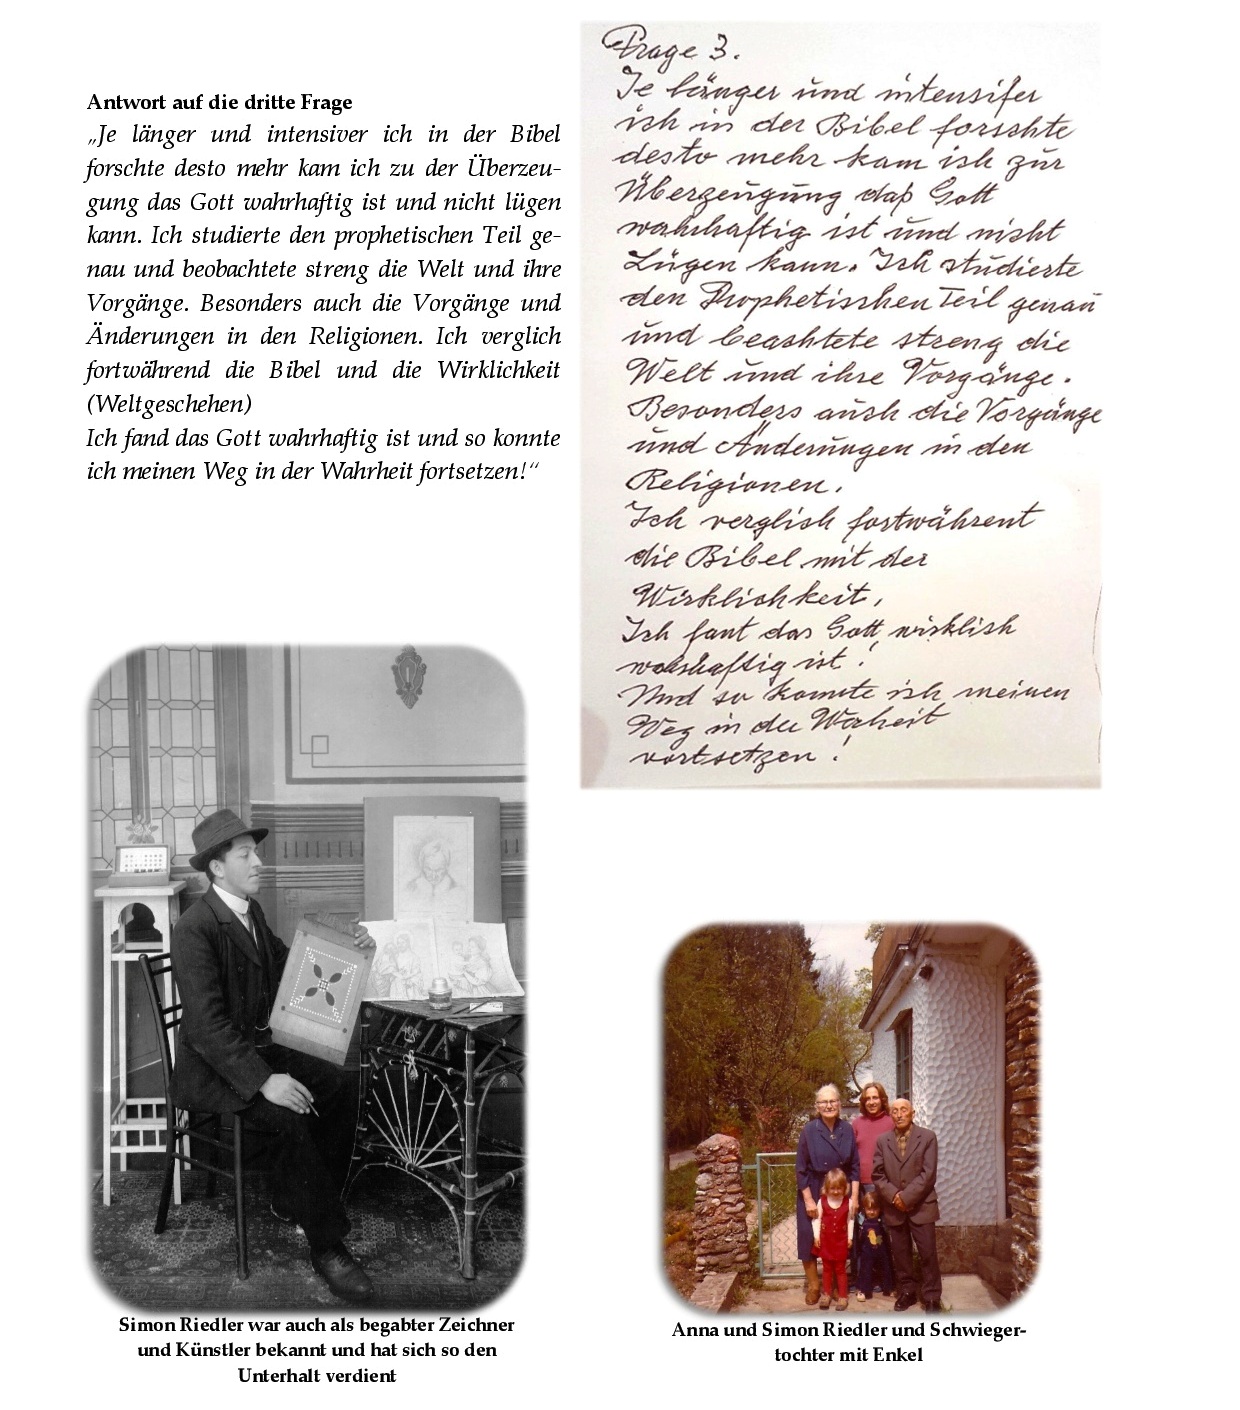 Antwort auf die dritte Frage
„Je länger und intensiver ich in der Bibel
forschte desto mehr kam ich zu der Überzeu-
gung das Gott wahrhaftig ist und nicht lügen
kann. Ich studierte den prophetischen Teil ge-
nau und beobachtete streng die Welt und ihre
Vorgänge. Besonders auch die Vorgänge und
Änderungen in den Religionen. Ich verglich
fortwährend die Bibel und die Wirklichkeit
(Weltgeschehen)
Ich fand das Gott wahrhaftig ist und so konnte
ich meinen Weg in der Wahrheit fortsetzen!“
Frage 3.
Je länger und intensifer
ich in der Bibel forschte
desto mehr kam ich zur
Überzeugung daß Gott
wahrhaftig ist und nicht
Lügen kann. Ich studierte
den Prophetischen Teil genau
und beachtete streng die
Welt und ihre Vorgänge.
Besonders auch die Vorgänge
und Änderungen in den
Religionen.
Ich verglich fortwährent
die Bibel mit der
Wirklichkeit,
Ich fant das Gott wirklich
wahrhaftig ist!
Und so konnte ich meinen
Weg in der Warheit
vortsetzen!
Simon Riedler war auch als begabter Zeichner
und Künstler bekannt und hat sich so den
Unterhalt verdient
Anna und Simon Riedler und Schwieger-
tochter mit Enkel